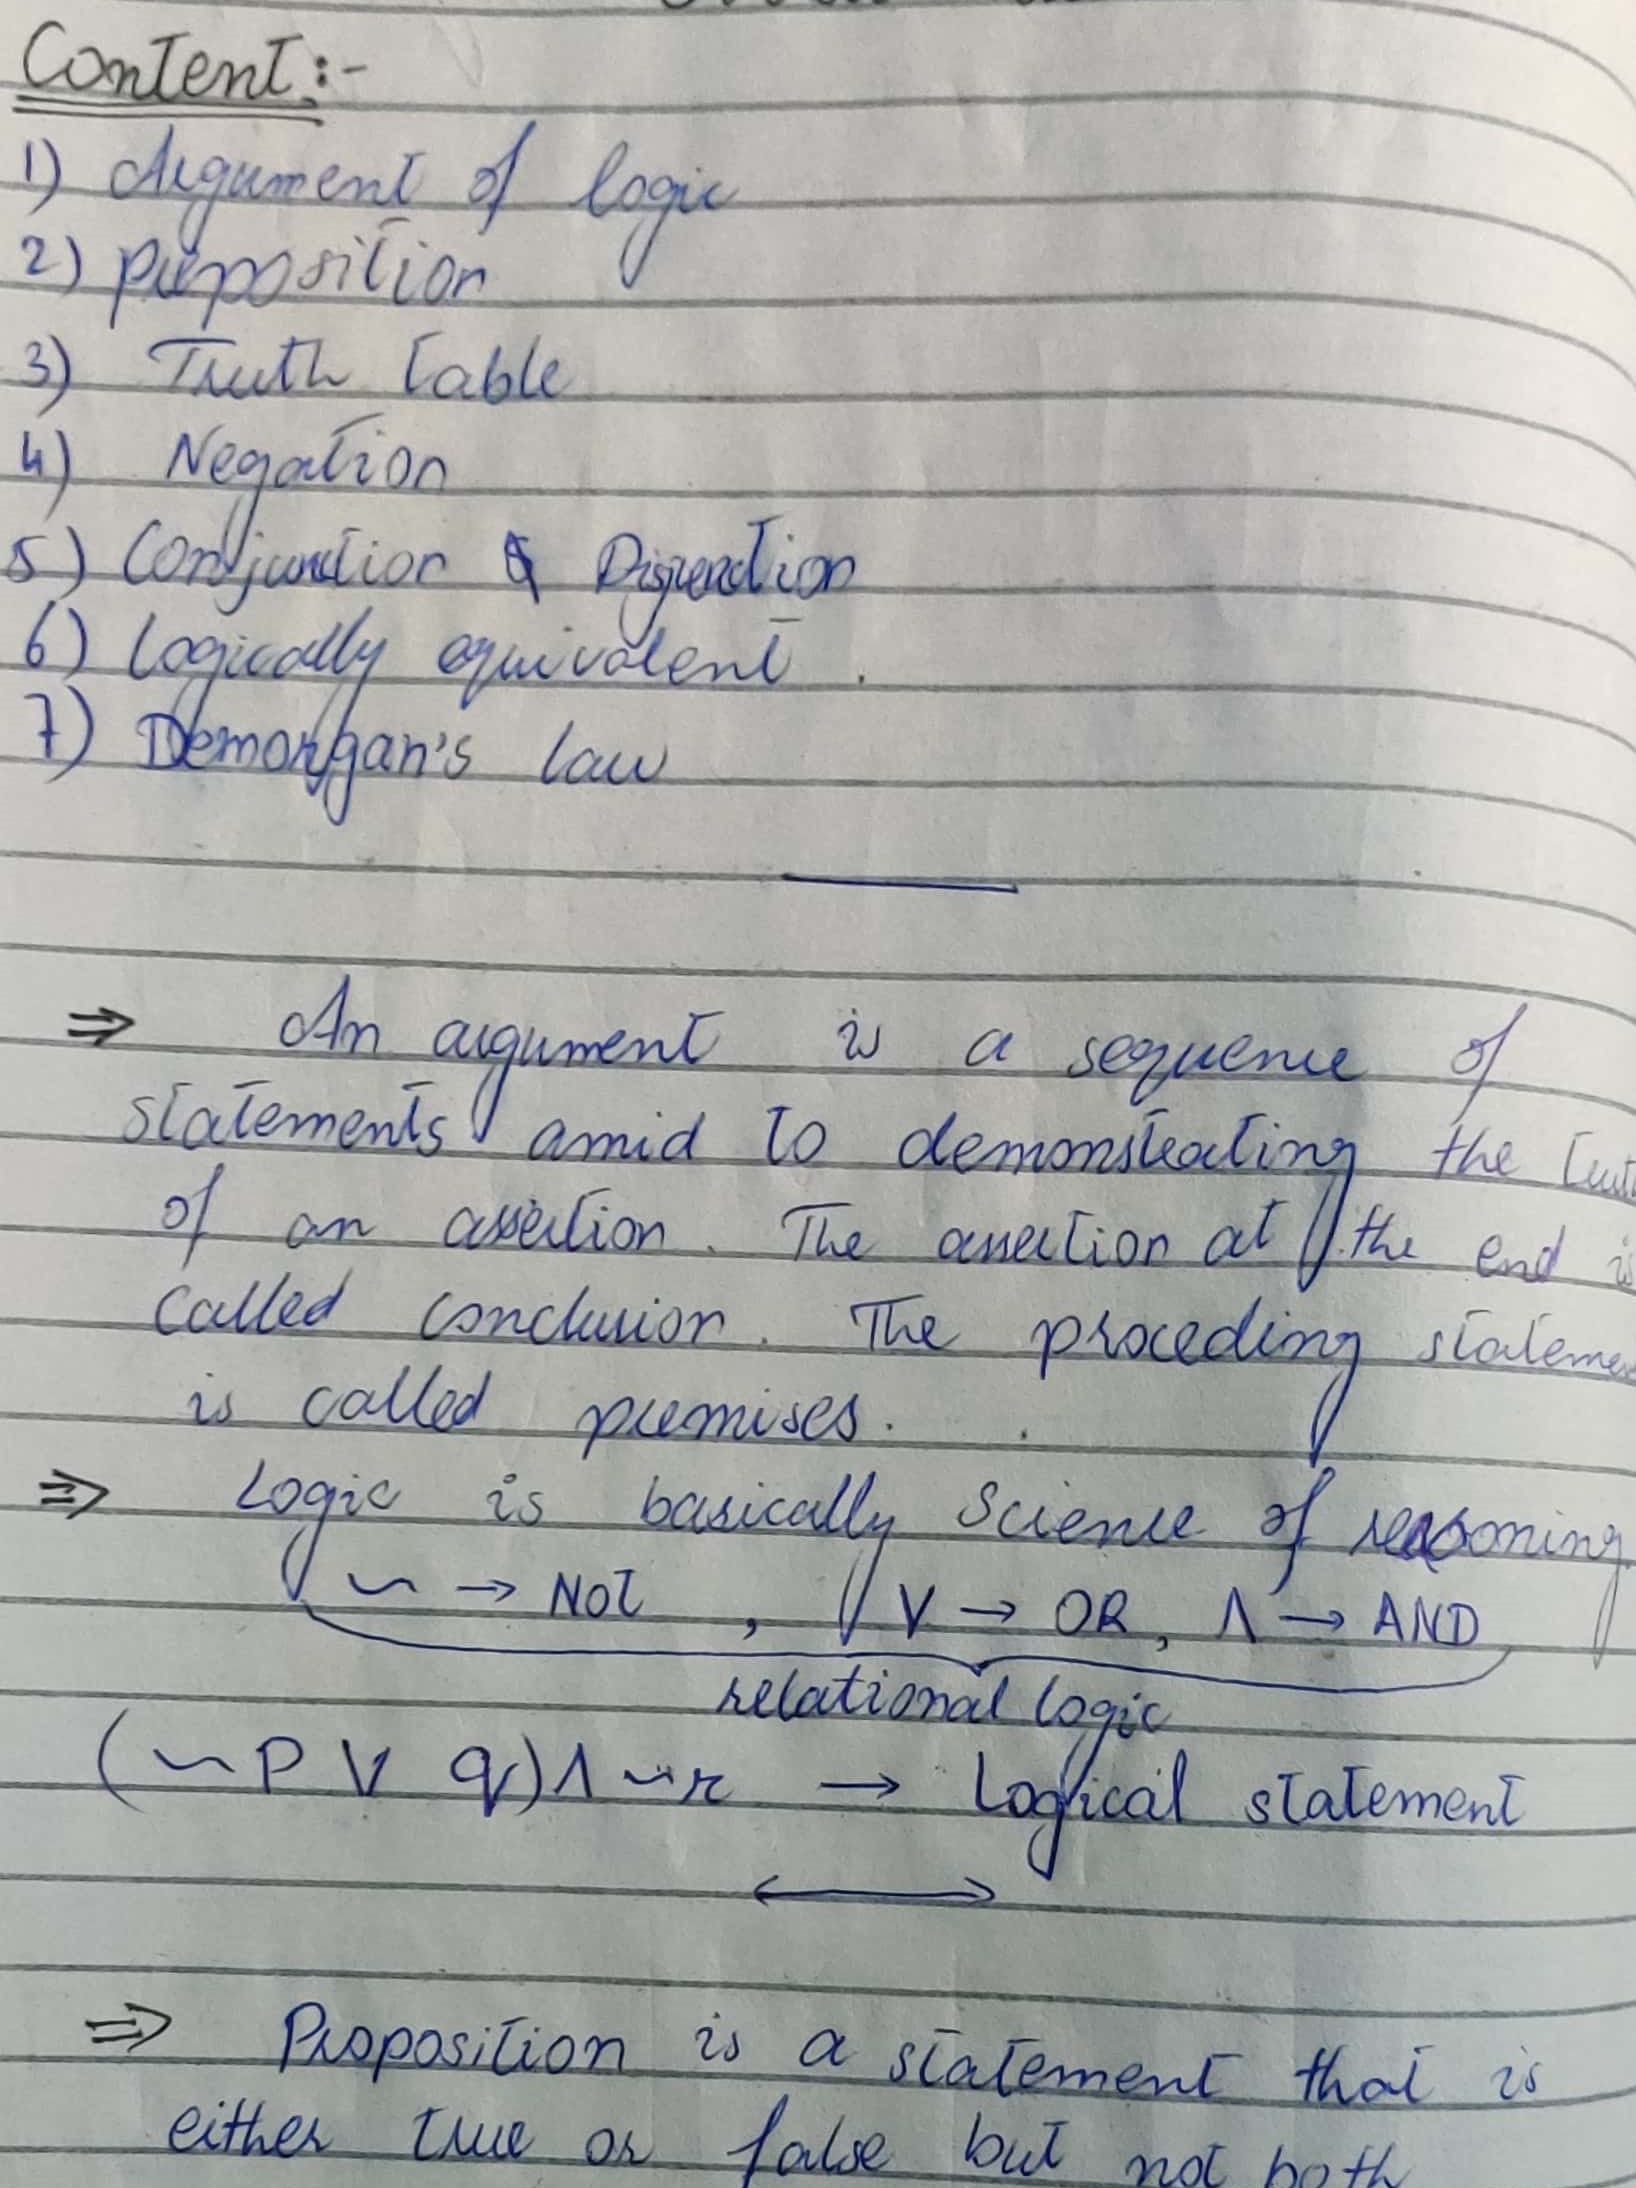 Content:-
1) Argument of logic
2) Preposition
3) Truth table
4) Negation
5) Conjunction & Disjunction
6) Logically equivalent.
7) Demorgan's law
⇒ An argument is a sequence of
statements amid to demonstrating the trut
of an assertion. The assertion at the end is
called conclusion. The proceding stateme
is called premises.
⇒ Logic is basically Science of reasoning
~ → Not , ∨ → OR, ∧ → AND
relational logic
(~P ∨ q)∧ ~r → Logical statement
⇒ Proposition is a statement that is
either true or false but not both